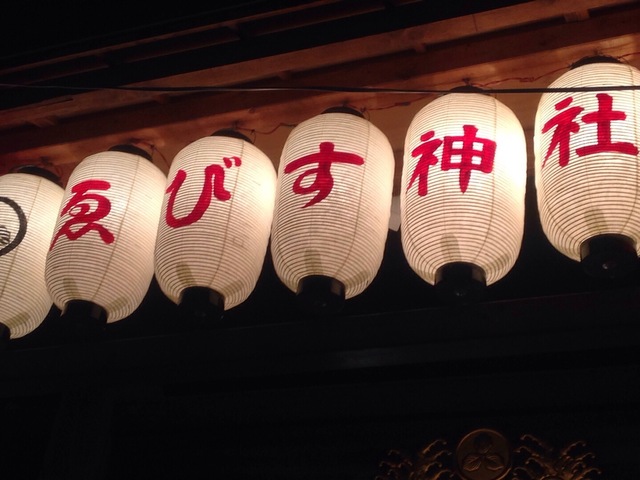 ゑびす神社